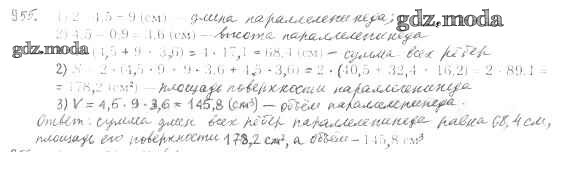 955. 1) 2 · 4,5 = 9 (см) — длина параллелепипеда;
gdz.moda
2) 4,5 - 0,9 = 3,6 (см) — высота параллелепипеда
gdz.moda
(4,5 + 9 + 3,6) = 4 · 17,1 = 68,4 (см) — сумма всех рёбер
2) S = 2 · (4,5 · 9 + 9 · 3,6 + 4,5 · 3,6) = 2 · (40,5 + 32,4 + 16,2) = 2 · 89,1 =
= 178,2 (см²) — площадь поверхности параллелепипеда
3) V = 4,5 · 9 · 3,6 = 145,8 (см³) — объём параллелепипеда.
Ответ: сумма длин всех рёбер параллелепипеда равна 68,4 см,
площадь его поверхности 178,2 см², а объём — 145,8 см³